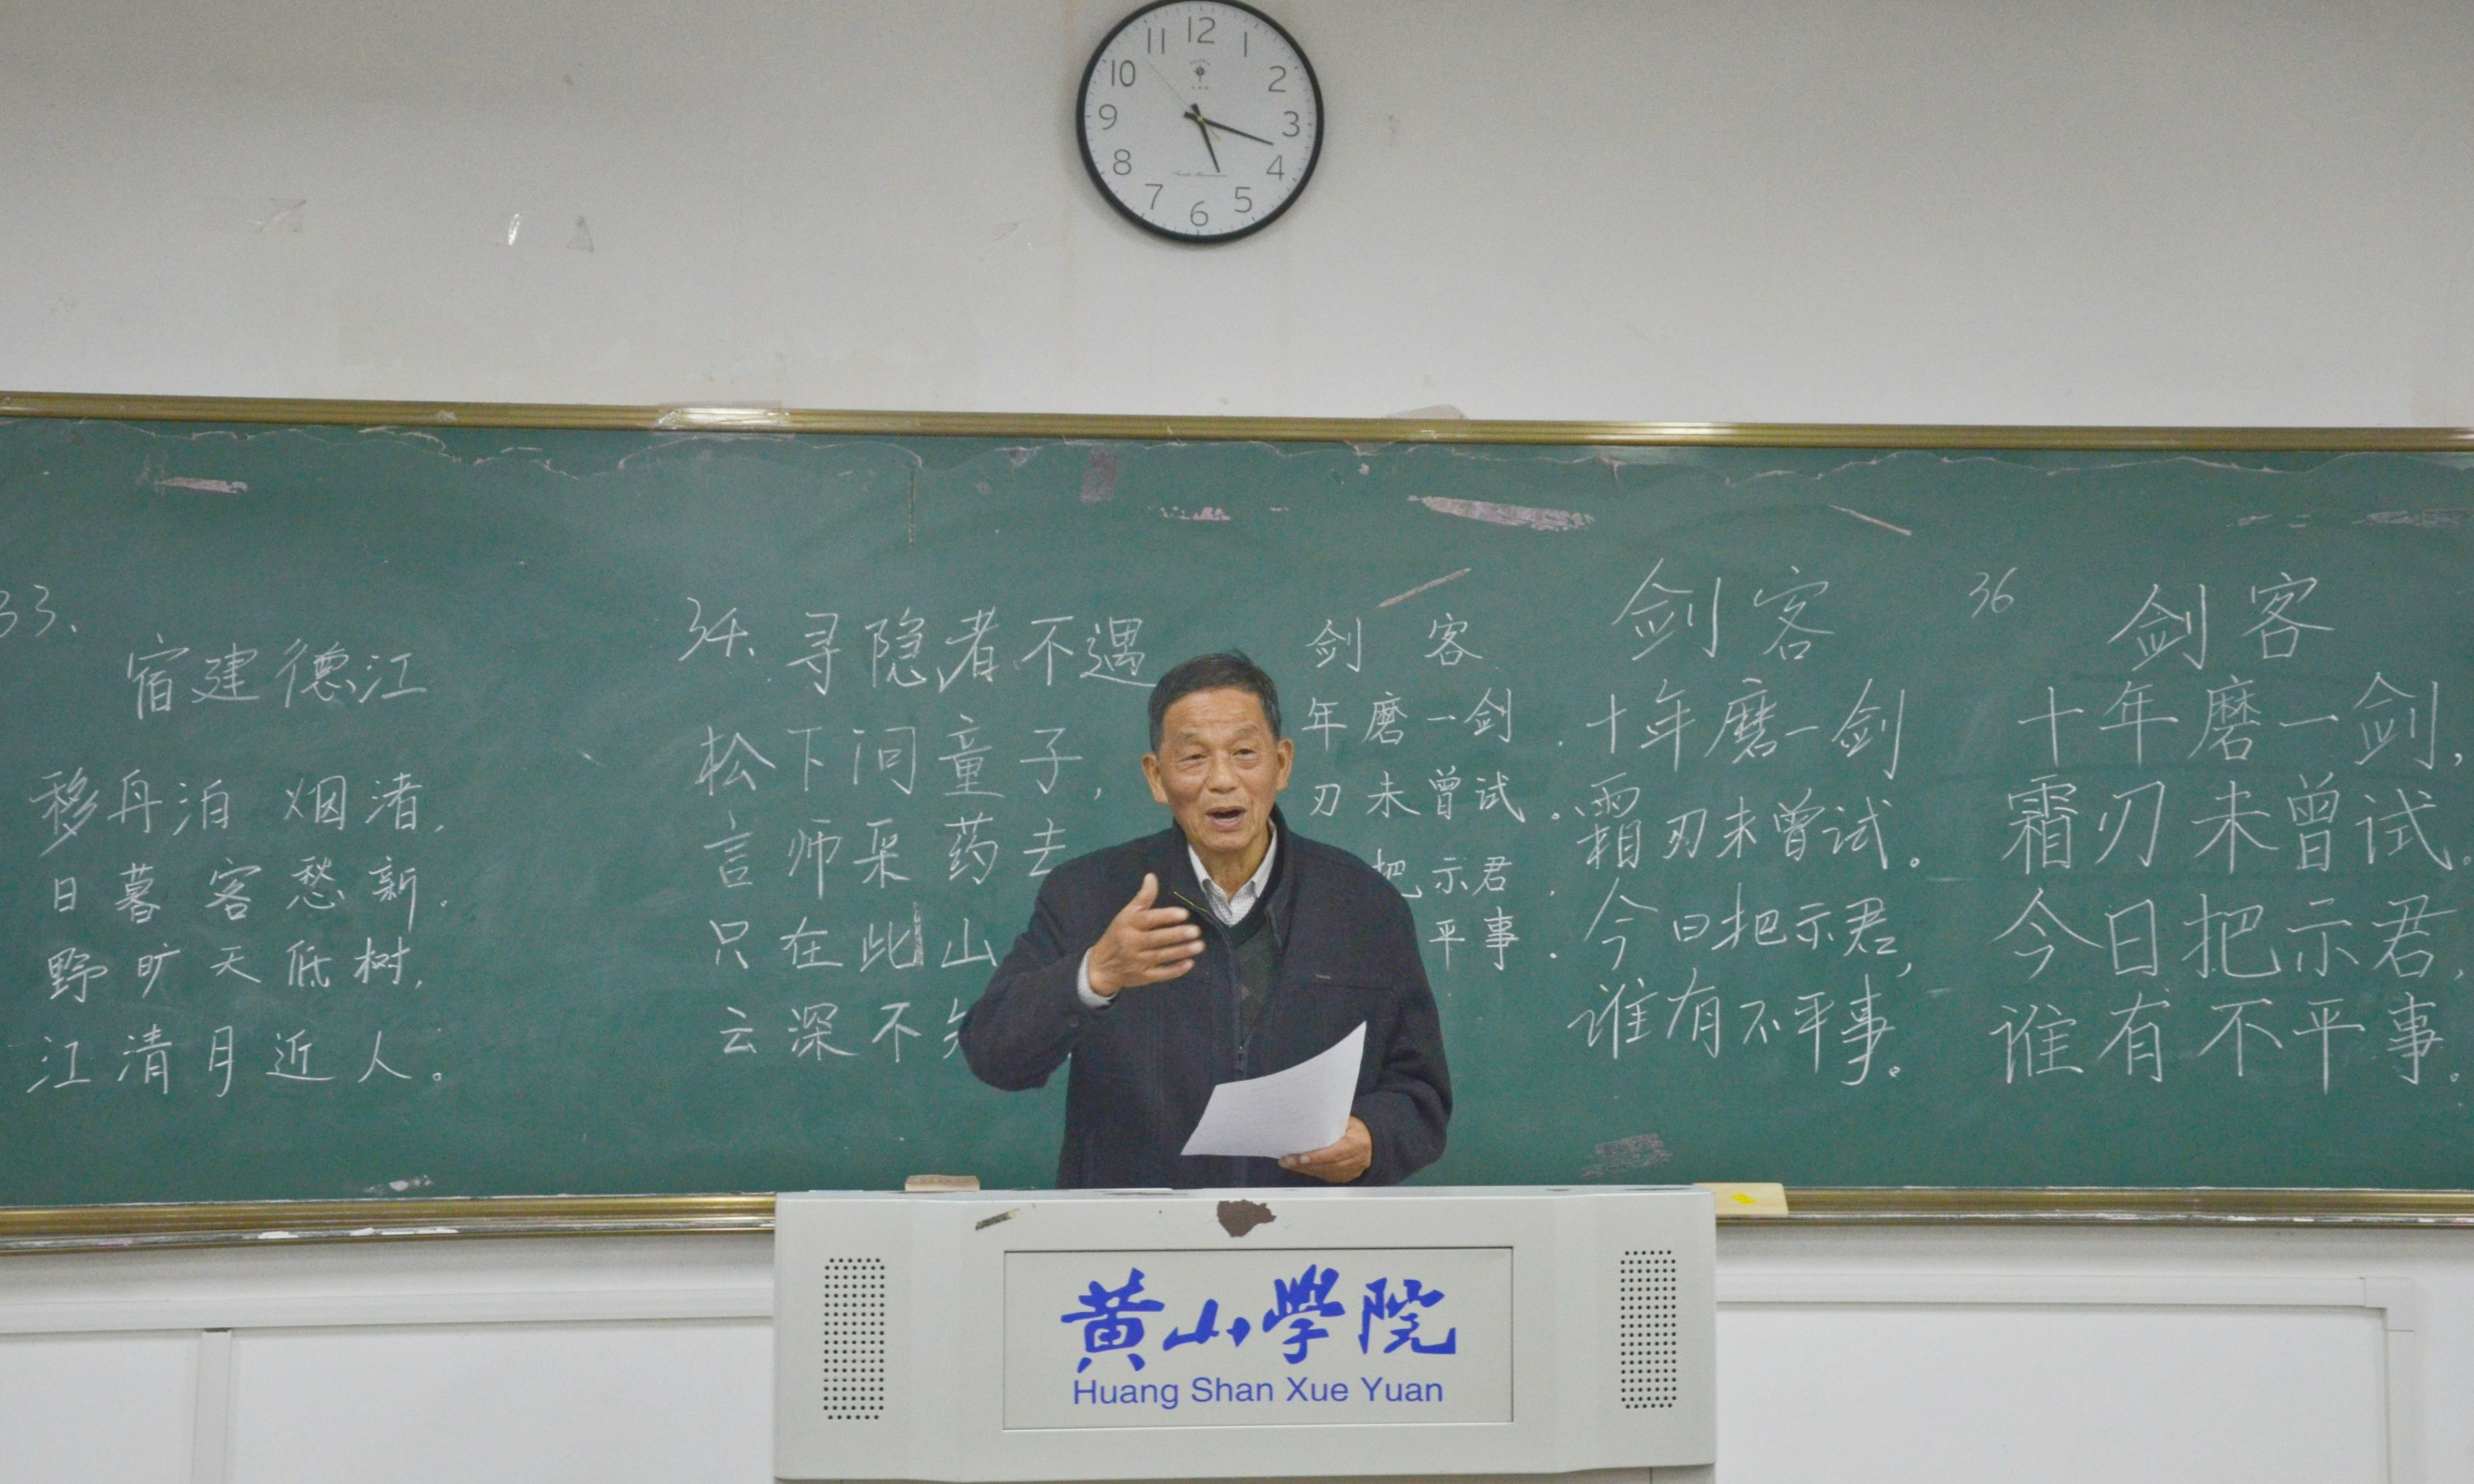 12
11 1
10 2
9 3
8 4
7 5
6
33.
宿建德江
移舟泊烟渚,
日暮客愁新.
野旷天低树,
江清月近人。
34.
寻隐者不遇
松下问童子,
言师采药去
只在此山
云深不
剑客
年磨一剑.
刃未曾试。
把示君.
平事.
剑客
十年磨一剑
霜刃未曾试。
今日把示君,
谁有不平事。
36
剑客
十年磨一剑,
霜刃未曾试。
今日把示君,
谁有不平事。
黄山學院
Huang Shan Xue Yuan